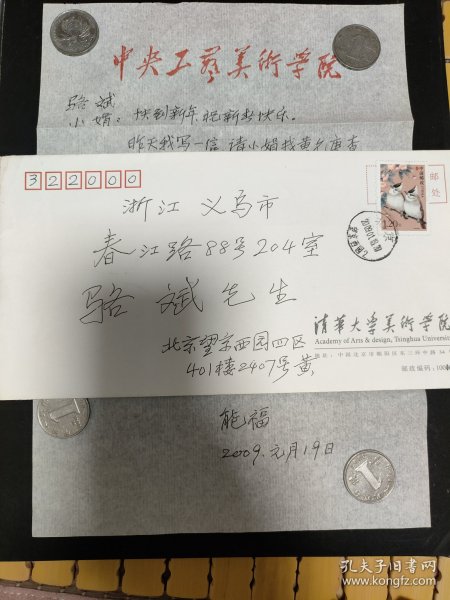 中央工艺美術学院
骆斌
小娟：快到新年，祝新春快乐。
昨天我写一信，请小娟找黄
322000
邮
处
浙江 义乌市
春江路88号204室
骆 斌 先生
北京望京西园四区
401楼2407号黄
清华大学美術学院
Academy of Arts & design, Tsinghua University
地址：中国北京市朝阳区东三环中路34
邮政编码：100
能福
2009.元月19日
孔夫子旧书网
www.kongfz.com